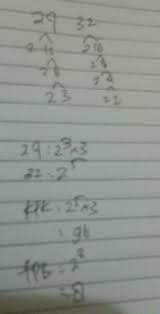 24 32
2 12 2 16
2 6 2 8
2 3 2 4
2 2
24 = 2³×3
32 = 2⁵
KPK = 2⁵×3
= 96
FPB = 2³
= 8